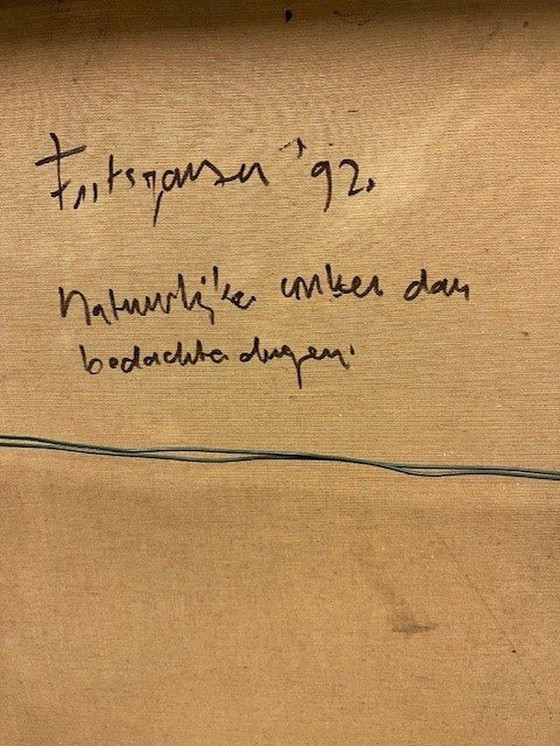 Fritsjansen '92.
Natuurlijke dan
bedachte dingen.